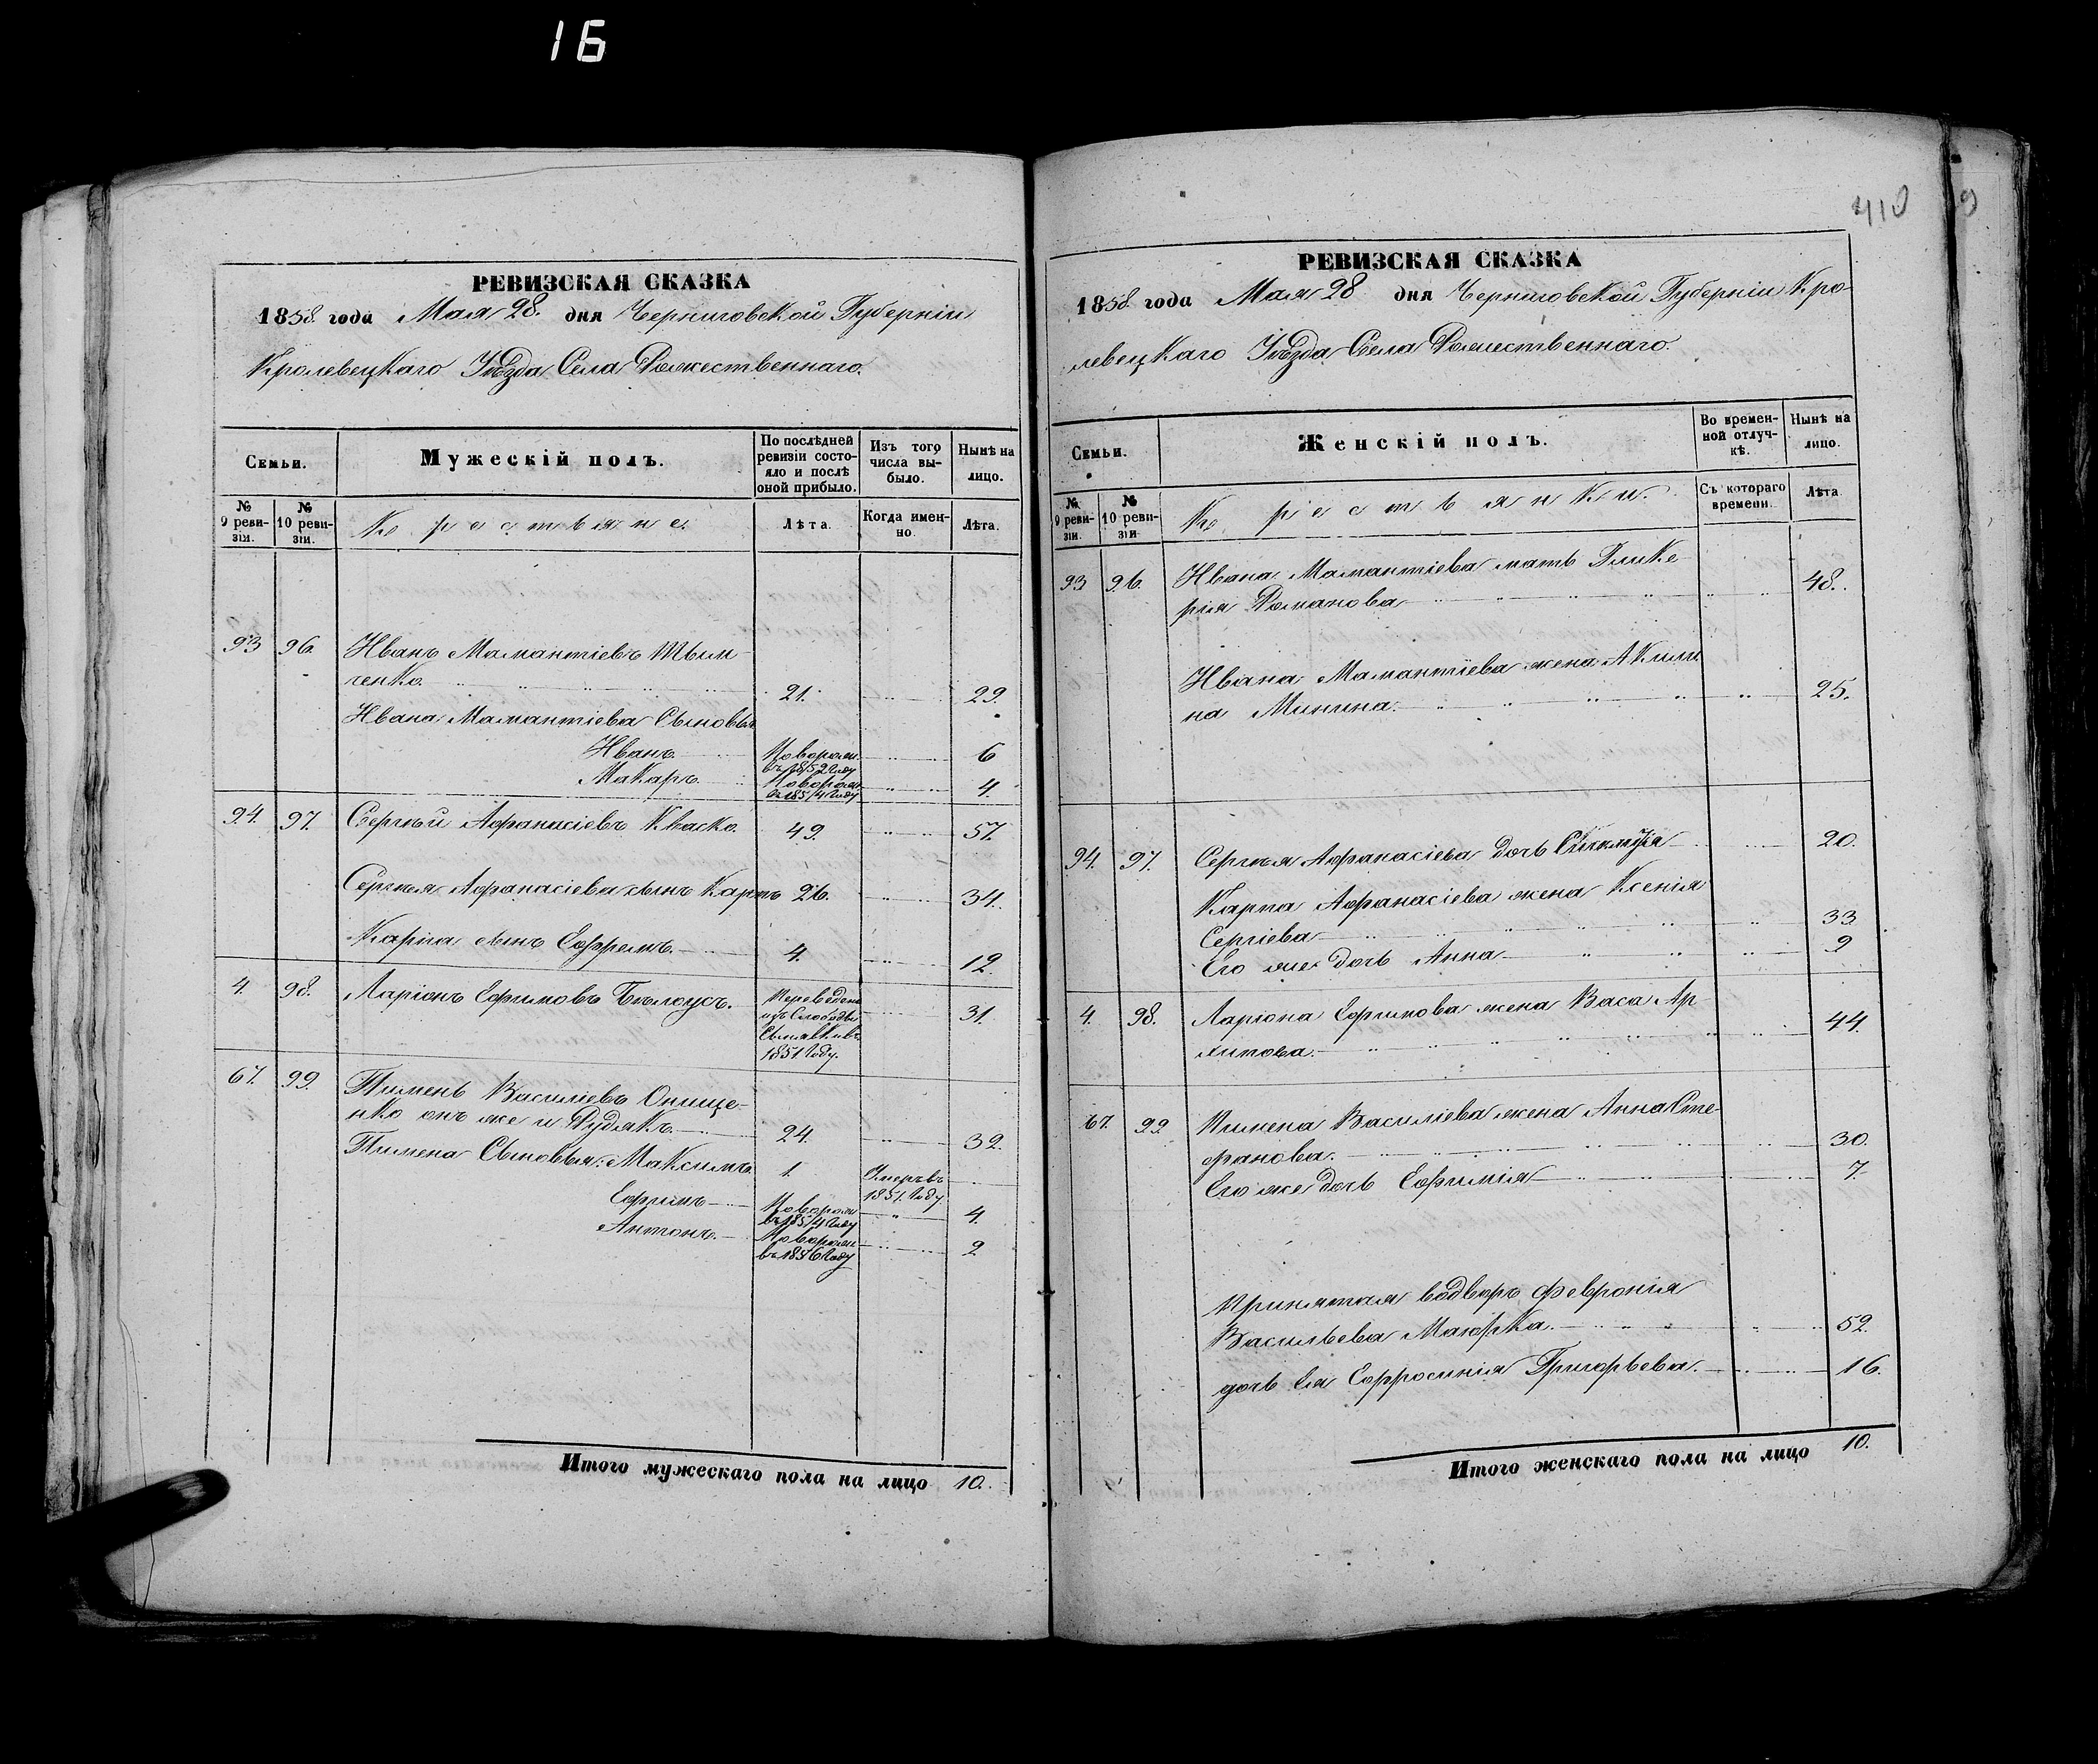 16
410
9
РЕВИЗСКАЯ СКАЗКА
1858 года Мая 28. дня Черниговской Губерніи
Кролевецкаго Уѣзда Села Рожественнаго.
Семьи.
Мужескій полъ.
По послѣдней
ревизіи состо-
яло и послѣ
оной прибыло.
Изъ того
числа вы-
было.
Нынѣ на
лицо.
№
9 реви-
зіи.
№
10 реви-
зіи.
Крестьяне.
Лѣта.
Когда имен-
но.
Лѣта.
93 96. Иванъ Мамантіевъ
ченко. 21. 29.
Ивана Мамантіева Сыновья
Иванъ. Новорож. въ 1852 Году 6
Макаръ. Новорож. въ 1854 Году 4.
94. 97. Сергѣй Афанасіевъ Кваско. 49. 57.
Сергѣя Афанасіева сынъ Карпъ 26. 34.
Карпа сынъ Ефремъ. 4. 12.
4. 98. Ларіонъ Ефимовъ Бѣлоусъ. Переведенъ 31.
изъ Слободы
1851 Году.
67. 99. Пименъ Василіевъ Онище-
нко онъ же и Рудякъ. 24. 32.
Пимена Сыновья: Максимъ 1. Умеръ въ
1851. Году
Ефимъ Новорож. въ 1854 Году 4.
Антонъ. Новорож. въ 1856 Году 2
Итого мужескаго пола на лицо 10.
РЕВИЗСКАЯ СКАЗКА
1858 года Мая 28 дня Черниговской Губерніи Кро-
левецкаго Уѣзда Села Рожественнаго.
Семьи.
Женскій полъ.
Во времен-
ной отлуч-
кѣ.
Нынѣ на
лицо.
№
9 реви-
зіи.
№
10 реви-
зіи
Крестьянки.
Съ котораго
времени.
Лѣта.
93 96. Ивана Мамантіева мать Глике-
рія Романова 48.
Ивана Мамантіева жена Акили-
на Минина. 25.
94. 97. Сергѣя Афанасіева дочь 20.
Карпа Афанасіева жена Ксенія
Сергіева 33.
Его же дочь Анна 9
4. 98. Ларіона Ефимова жена Васа Ар-
44.
67. 99. Пимена Василіева жена Анна Сте-
фанова. 30.
Его же дочь Ефимія 7.
Принятая водворъ Февронія
Васильева 52.
дочь Ея Ефросинія Григорьева. 16.
Итого женскаго пола на лицо 10.